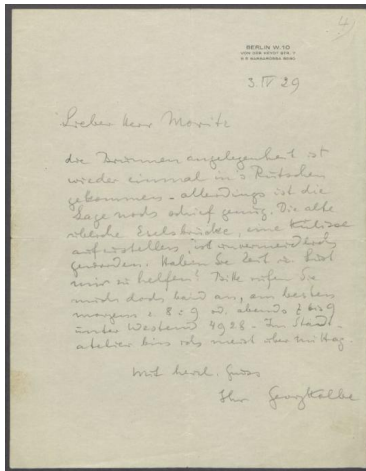 4)
BERLIN W.10
VON DER HEYDT STR. 7
3. IV 29
Lieber Herr Moritz
die Brunnenangelegenheit ist
wieder einmal ins Rutschen
gekommen – allerdings ist die
Lage noch schief genug. Die alte
übliche Eselsbrücke, eine Kulisse
aufzustellen, ist unvermeidlich
geworden. Haben Sie Zeit u. Lust
mir zu helfen? Bitte rufen Sie
mich doch bald an, am besten
morgens 8-9 od. abends 7 bis 9
unter Westend 4928 – Im Stadt-
atelier bin ich meist über Mittag
Mit herzl. Gruss
Ihr Georg Kolbe